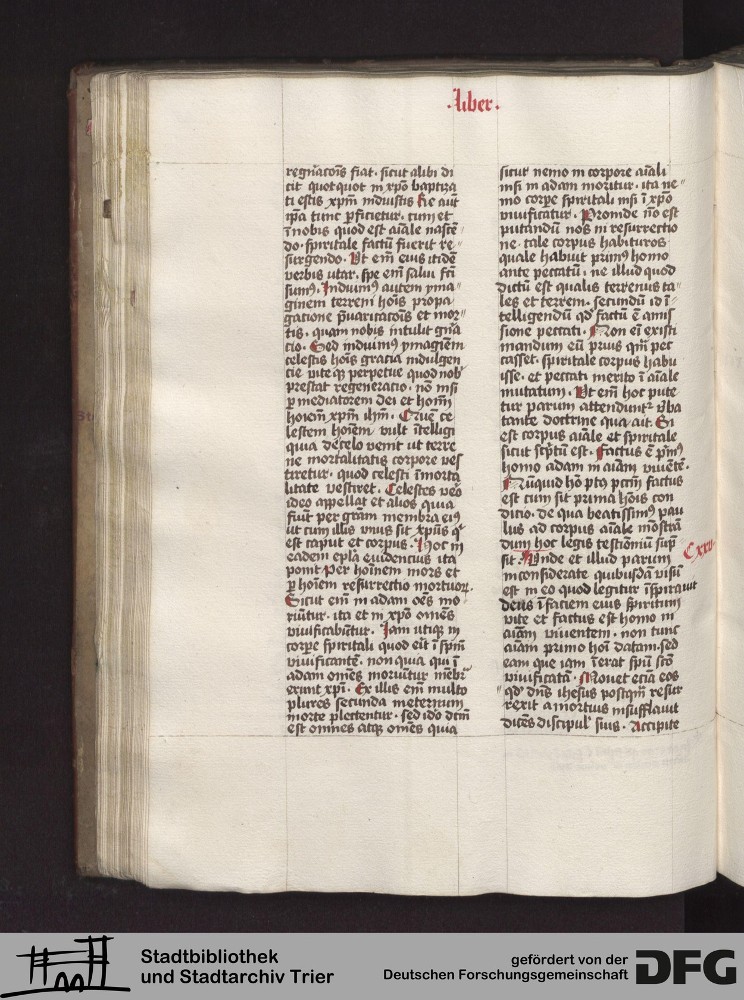 ·liber·
regnacōis fiat· sicut alibi di
cit quotquot in xpō baptiza
ti estis xpm̄ induistis hic aut̄
ip̄a tunc p̄ficietur· cum et
ī nobis quod est aīale nascē
do· spiritale factū fuerit re
surgendo· Ut em̄ eius itidē
verbis utar· spe em̄ salui fc̄i
sumꝰ· Induimꝰ autem yma
ginem terreni hoīs propa
gatione p̄uaricacōis et mor
tis· quam nobis intulit gn̄a
cio· Sed induimꝰ ymaginē
celestis hoīs gracia indulgen
cie vite qꝫ perpetue quod nob̄
prestat regeneracio· nō nisi
p mediatorem dei et hom̄
hoiem̄ xpm̄ ihm̄· Quē ce
lestem hoīem vult ītelligi
quia de celo venit ut terre
ne mortalitatis corpore ves
tiretur· quod celesti īmorta
litate vestiret· Celestes v̄o
ideo appellat et alios quia
fiūt per grām membra eiꝰ
ut cum illis vnus sit xpūs q̄
est caput et corpus· Hoc in
eadem ep̄la euidencius ita
ponit Per hoīnem mors et
p hoīem resurrectio mortuoꝝ·
Sicut em̄ in adam oēs mo
riūtur· ita et in xpō omēs
viuificabūtur· Iam utiqꝫ in
corpe spiritali quod eīt ī spm̄
viuificantē· non quia qui ī
adam omēs moriūtur mēbr̄
erunt xpī· Ex illis em̄ multo
plures secunda in eternum
morte plectentur· sed ideo dc̄m
est omnes atqꝫ omēs quia
sicut nemo in corpore aīali
nisi in adam moritur· ita ne
mo corpe spiritali nisi ī xpō
viuificatur· Proinde nō est
putandū nos in resurrectio
ne· tale corpus habituros
quale habuit primꝰ homo
ante peccatū· ne illud quod
dictū est qualis terrenus ta
les et terreni· secundū id ī
telligendū qd̄ factū ē amis
sione peccati· Non eī existi
mandum eū prius qm̄ pec
casset· spiritale corpus habu
isse· et peccati merito ī aīale
mutatum· Ut em̄ hoc pute
tur parum attendunt̄ v̄ba
tante doctrine qua ait Si
est corpus aīale et spiritale
sicut sc̄ptū est· Factus ē p̄mꝰ
homo adam in aīam viuētē·
Nūquid hō ptꝫ pctm̄ factus
est cum sit prima hōis con
dicio· de qua beatissimꝰ pau
lus ad corpus aīale mōstrā
dum hoc legis testioniū sup̄
sit· Unde et illud parum Cxxv·
inconsiderate quibusdā visū
est in eo quod legitur īspirauit
deus ī faciem eius spiritum
vite et factus est homo in
aīam viuentem· non tunc
aīam primo hoī datam· sed
eam que iam īerat spū scō
viuificatā· Mouet eciā eos
qd̄ dn̄s ihesus postqm̄ resur
rexit a mortuis insufflauit
dicēs discipul̄ suis· Accipite
Stadtbibliothek
und Stadtarchiv Trier
gefördert von der
Deutschen Forschungsgemeinschaft
DFG